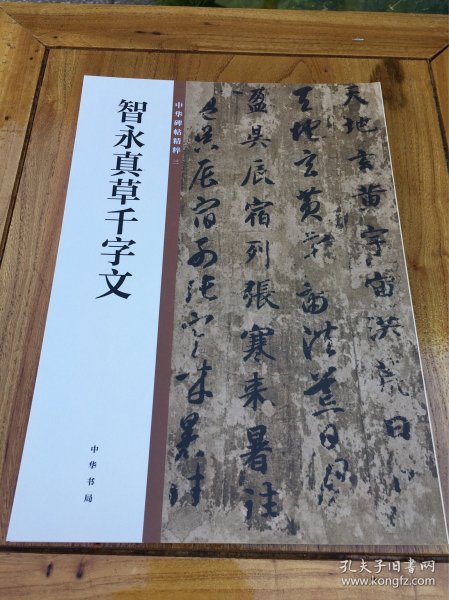 智永真草千字文
中华碑帖精粹 三
中华书局
天地玄黄宇宙洪荒日月
天地玄黄宇宙洪荒日月
盈昃辰宿列張寒来暑往
盈昃辰宿列張寒来暑往
孔夫子旧书网
www.kongfz.com